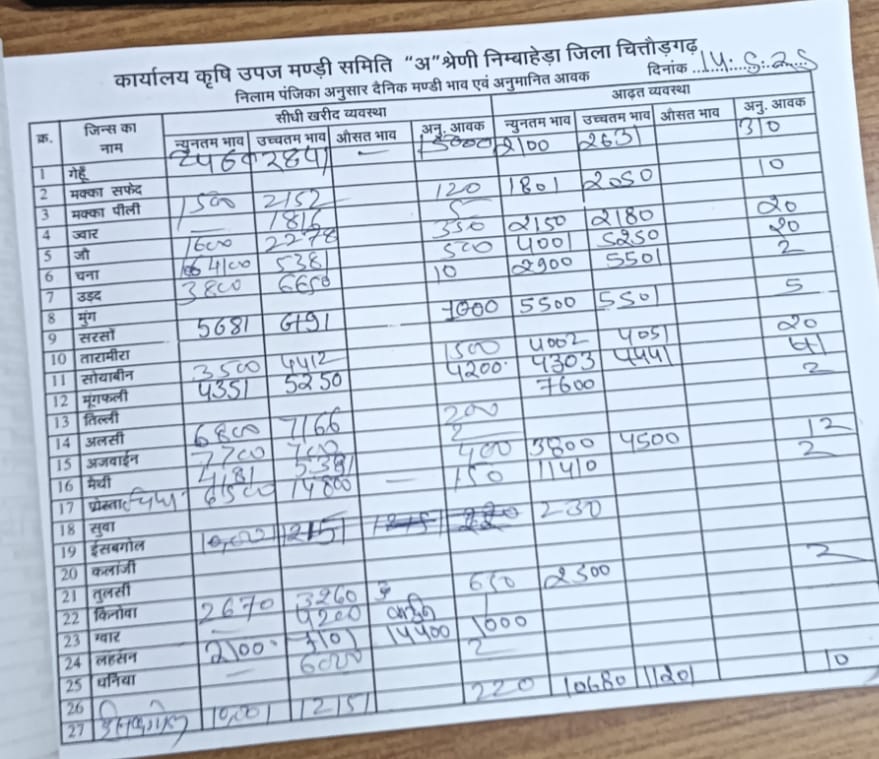 कार्यालय कृषि उपज मण्डी समिति "अ"श्रेणी निम्बाहेड़ा जिला चित्तौड़गढ़
निलाम पंजिका अनुसार दैनिक मण्डी भाव एवं अनुमानित आवक दिनांक 14.5.25
क्र. जिन्स का नाम सीधी खरीद व्यवस्था आढ़त व्यवस्था
न्युनतम भाव उच्चतम भाव औसत भाव अनु. आवक न्युनतम भाव उच्चतम भाव औसत भाव अनु. आवक
1 गेहूँ 2460 2841 — 15000 2100 2631 310
2 मक्का सफेद
3 मक्का पीली 1500 2152 120 1801 2050 10
4 ज्वार 1815 5
5 जौ 1600 2278 350 2150 2180 20
6 चना 5381 500 4001 5250 20
7 उड़द 3800 6650 10 2900 5501 2
8 मुंग
9 सरसों 5681 6191 5500 5501 5
10 तारामीरा
11 सोयाबीन 3500 4412 1500 4002 4051 20
12 मूंगफली 4351 5250 4200 4303 4441 41
13 तिल्ली 7600 2
14 अलसी 6800 7166 200
15 अजवाईन 7700 7700 2
16 मैथी 4181 5381 400 3800 4500 12
17 पोस्ता 14800 — 150 11410 2
18 सुवा
19 ईसबगोल 12151 230
20 कलौंजी
21 तुलसी
22 किनोवा 2670 3260 650 2500 2
23 ग्वार — 4200 1
24 लहसन 2100 7101 14400 1000
25 धनिया — 6000 2
26
27 10,001 12151 220 10680 11201 10